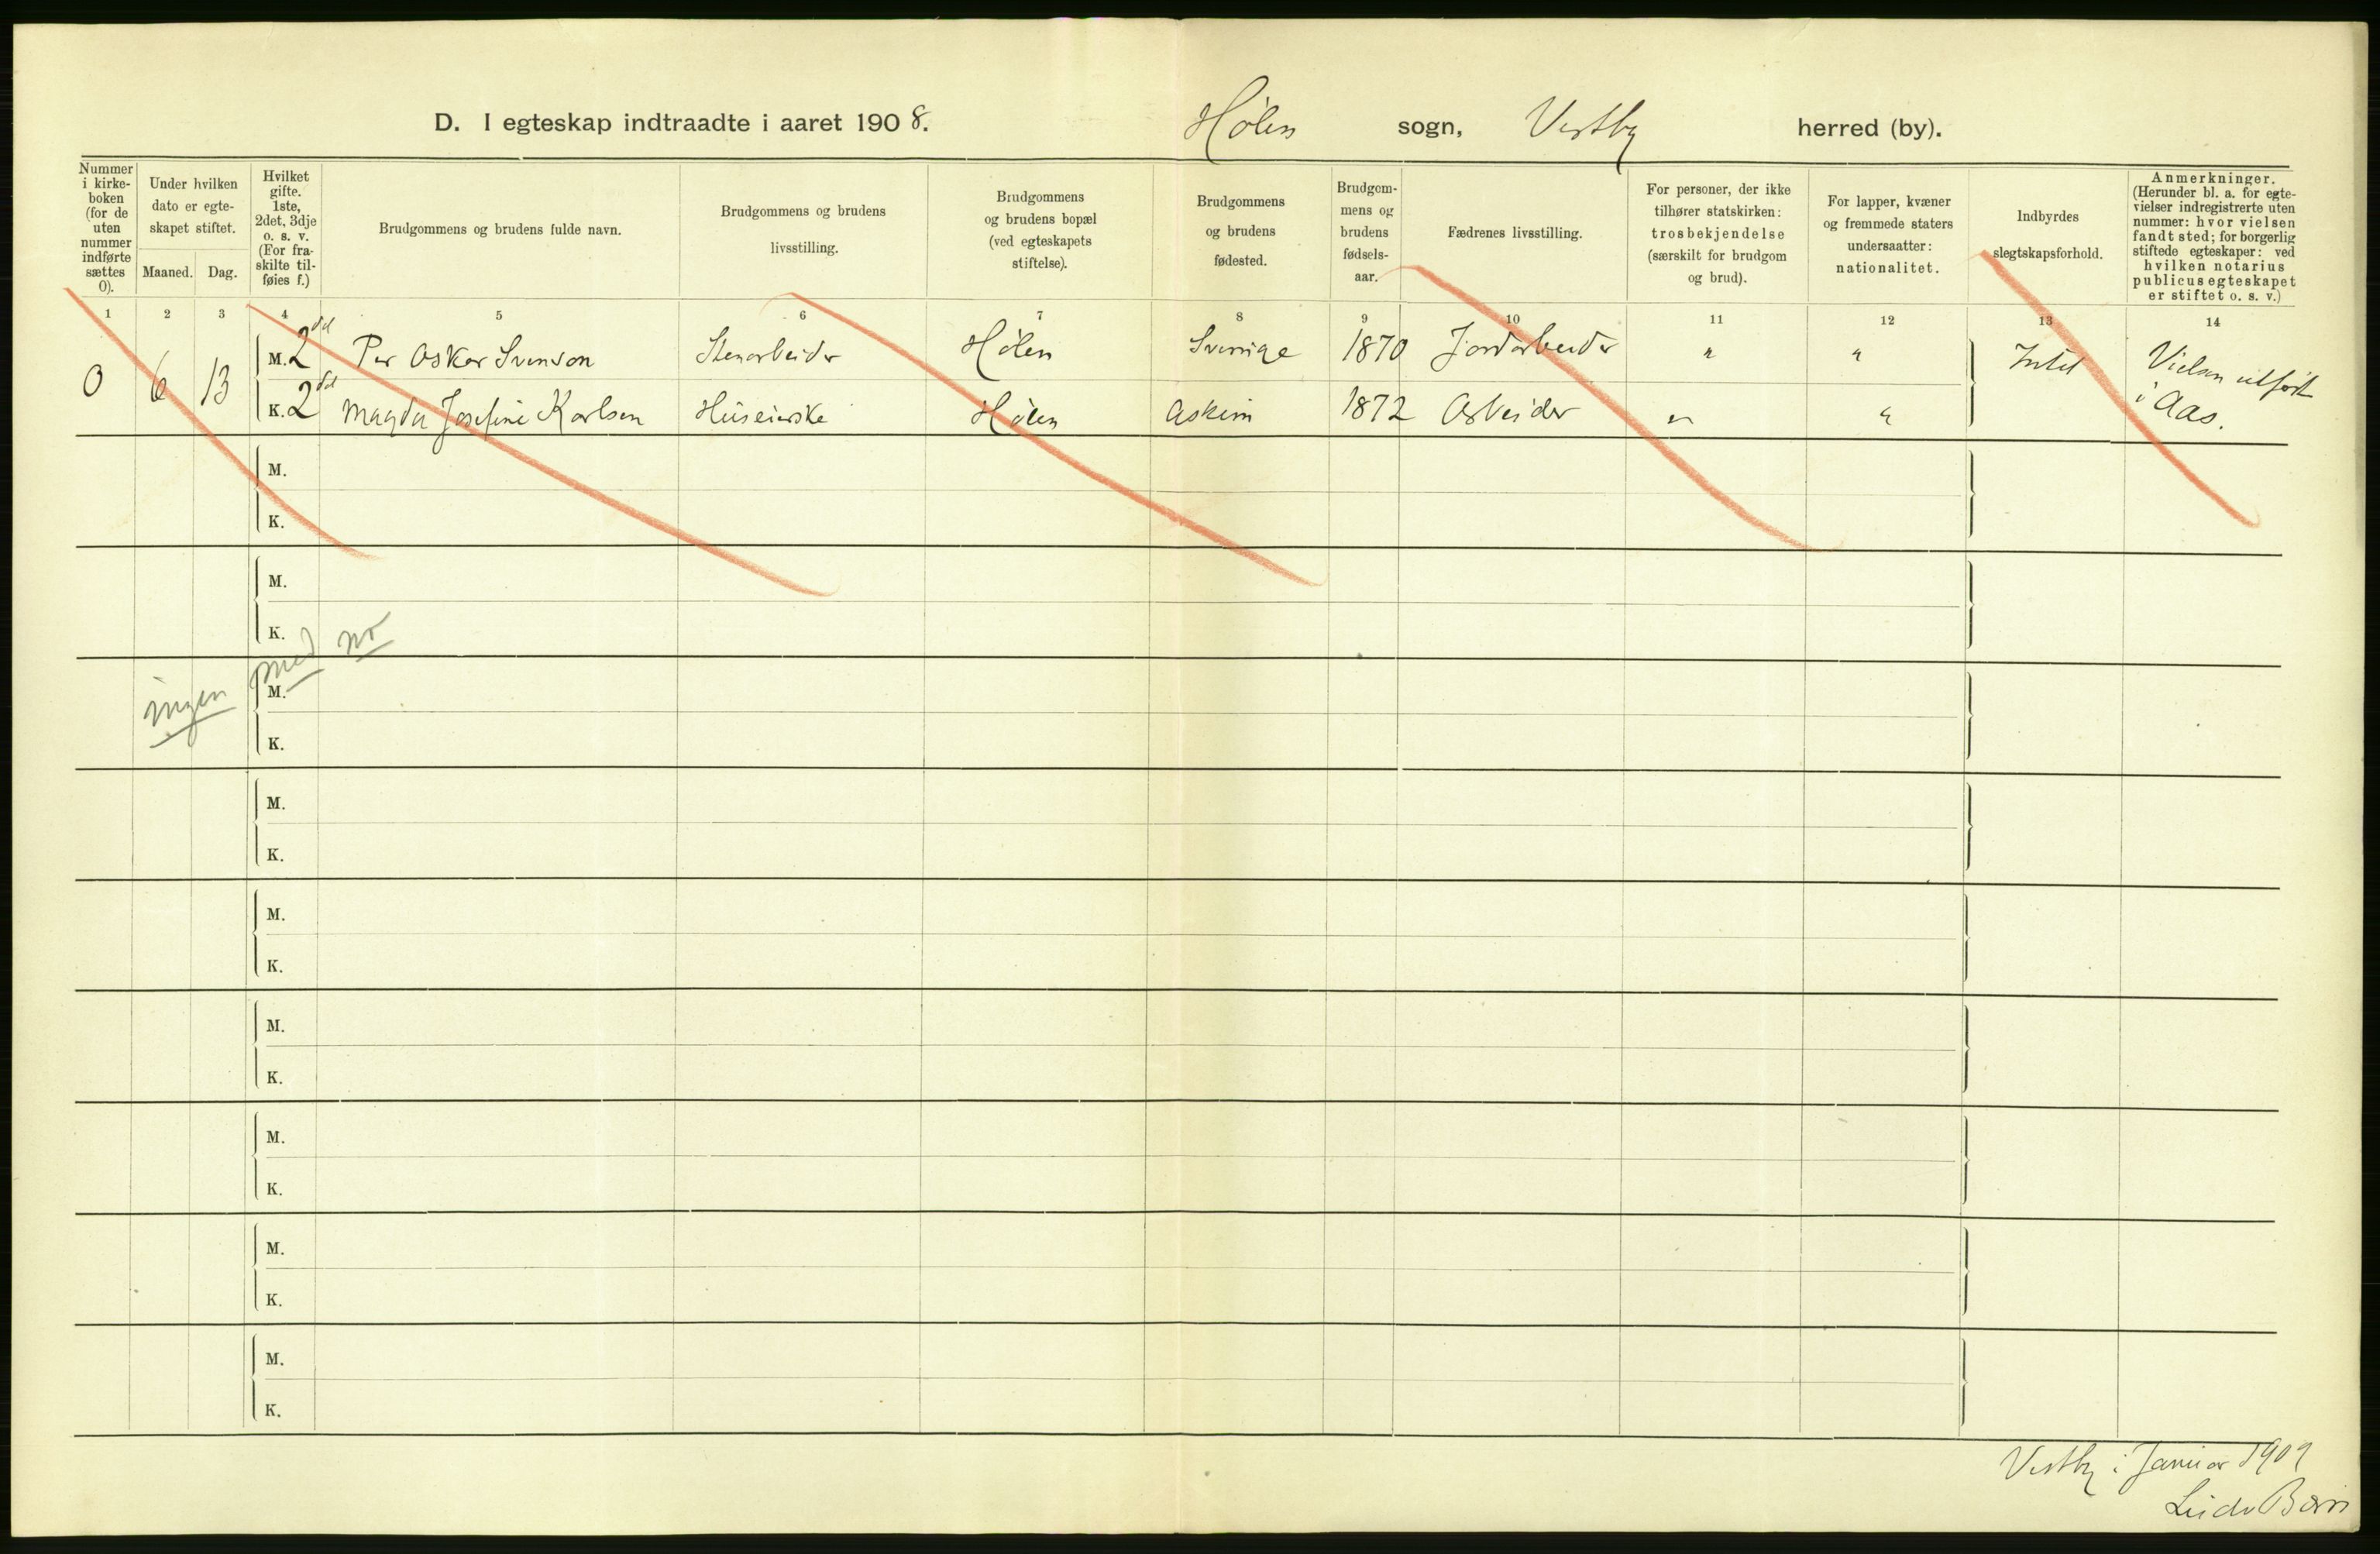 D. I egteskap indtraadte i aaret 1908.
Hølen sogn, Vestby herred (by).
Nummer i kirke- boken (for de uten nummer indførte sættes 0).
Under hvilken dato er egte- skapet stiftet.
Maaned. Dag.
Hvilket gifte. 1ste, 2det, 3dje o. s. v. (For fra- skilte til- føies f.)
Brudgommens og brudens fulde navn.
Brudgommens og brudens livsstilling.
Brudgommens og brudens bopæl (ved egteskapets stiftelse).
Brudgommens og brudens fødested.
Brudgom- mens og brudens fødsels- aar.
Fædrenes livsstilling.
For personer, der ikke tilhører statskirken: trosbekjendelse (særskilt for brudgom og brud).
For lapper, kvæner og fremmede staters undersaatter: nationalitet.
Indbyrdes slegtskapsforhold.
Anmerkninger. (Herunder bl. a. for egte- vielser indregistrerte uten nummer: hvor vielsen fandt sted; for borgerlig stiftede egteskaper: ved hvilken notarius publicus egteskapet er stiftet o. s. v.)
1 2 3 4 5 6 7 8 9 10 11 12 13 14
0 6 13
M. 2det Per Oskar Svenson Stenarbeider Hølen Sverrige 1870 Jordarbeider " " Intet Vielsen utført
K. 2det Magda Josefine Karlsen Huseierske Hølen Askim 1872 Arbeider " " i Aas.
M.
K.
M.
K.
ingen med no
M.
K.
M.
K.
M.
K.
M.
K.
M.
K.
M.
K.
M.
K.
Vestby i Januar 1909